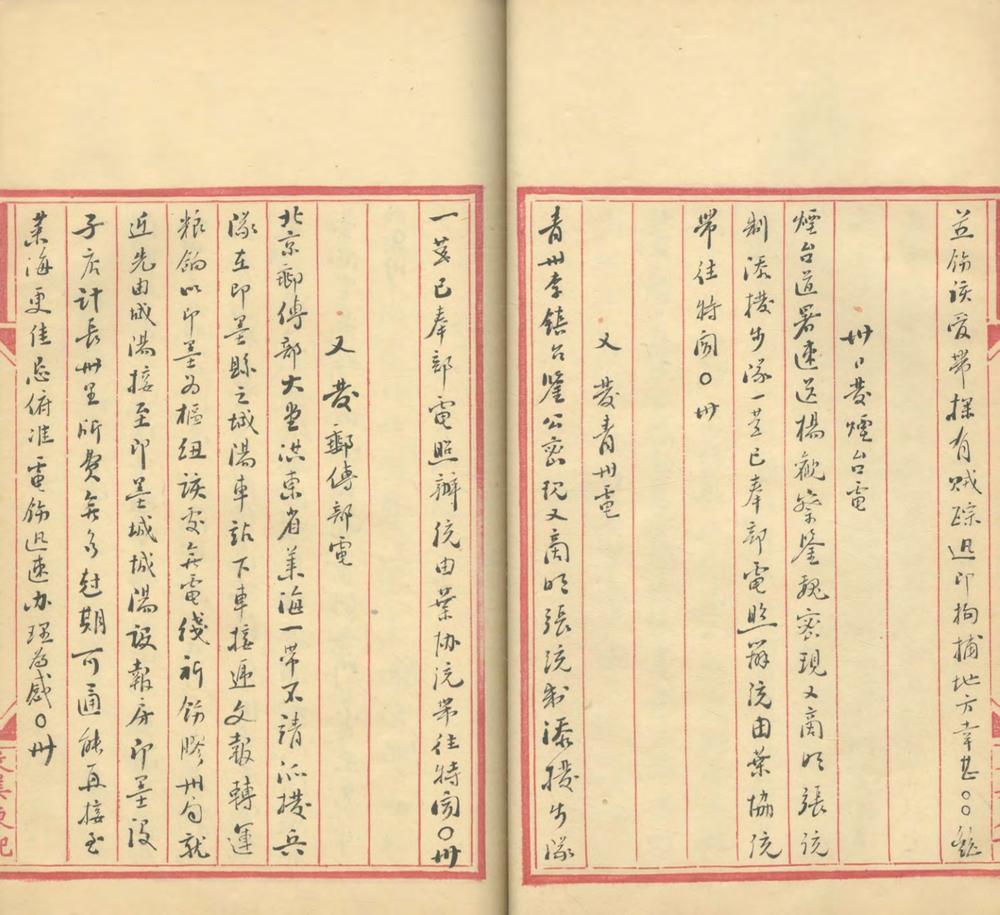 並飭該爰帶探有賊踪迅即拘捕地方幸甚〇〇
卅日發煙台電
煙台道署速送楊觀察鑒親密現又商明張統
制添撥步隊一營已奉部電照辦統由葉協統
帶往特聞〇卅
又發青州電
青州李鎮台鑒公密現又商明張統制添撥步隊
一營已奉部電照辦統由葉協統帶往特聞〇卅
又發郵傳部電
北京郵傳部大堂洪東省萊海一帶不靖派撥兵
隊在即墨縣之城陽車站下車接遞文報轉運
糧餉以即墨為樞紐該處無電綫祈飭膠州局就
近先由城陽接至即墨城城陽設報房即墨設
子店計長卅里所費無多尅期可通能再接至
萊海更佳忌俯准電飭迅速办理為感〇卅